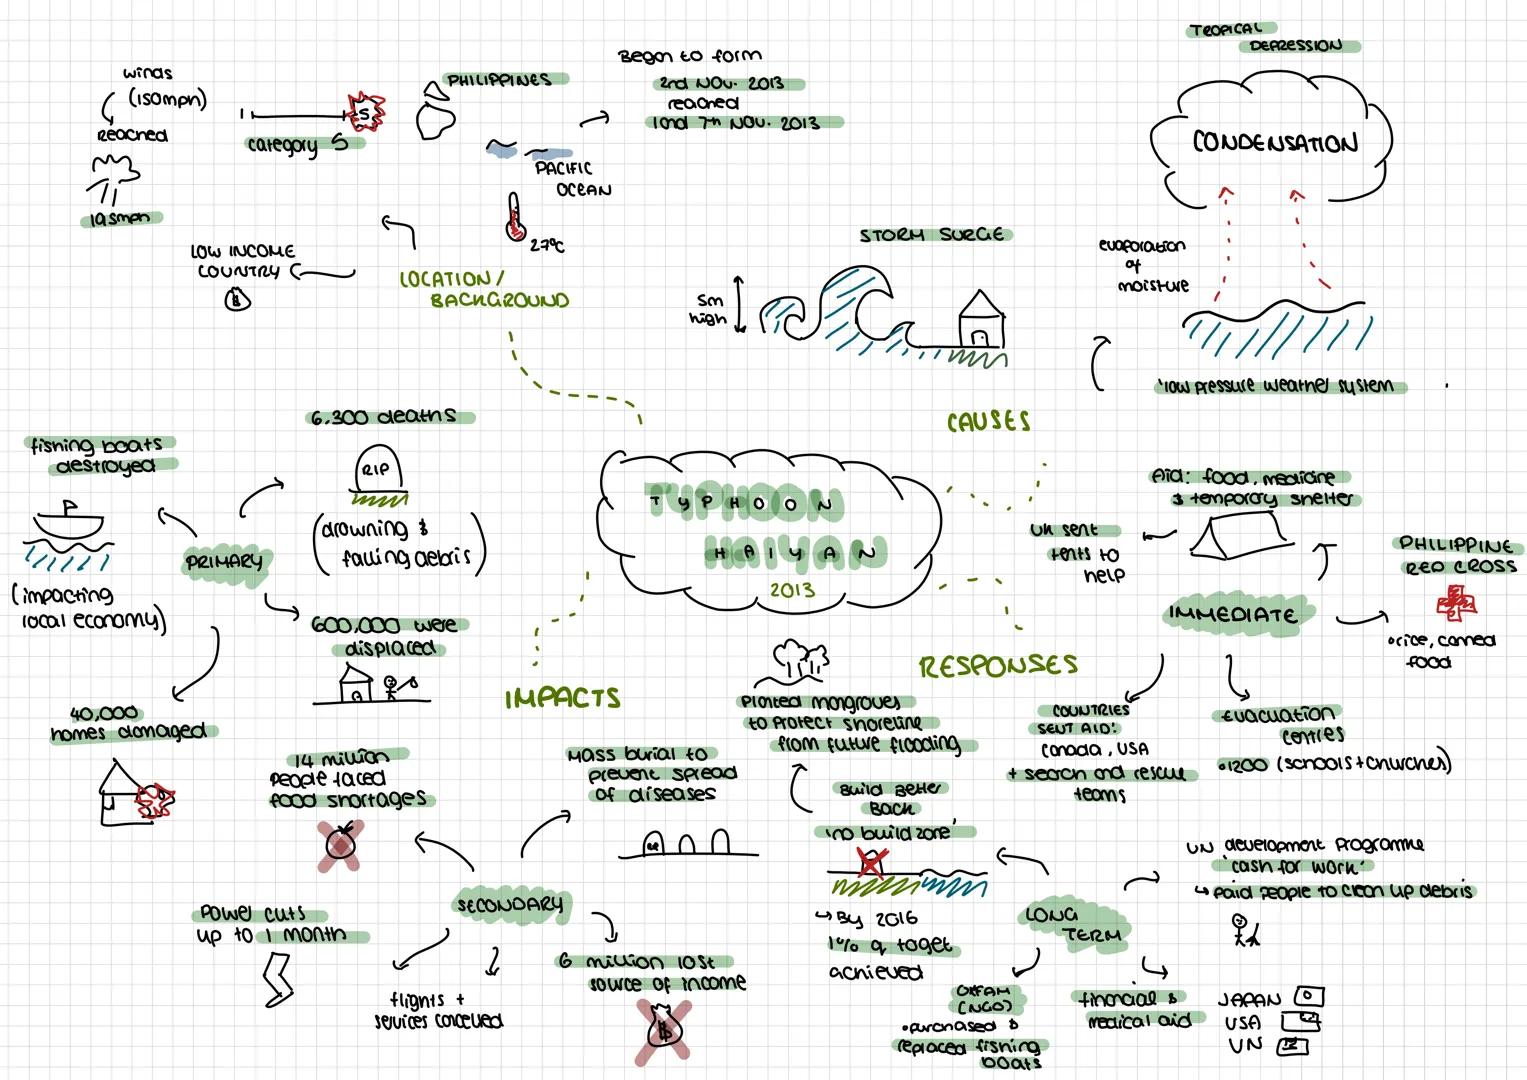 TYPHOON
HAIYAN
2013
LOCATION/
BACKGROUND
winds
(150mph)
Reached
195mph
category 5
5
PHILIPPINES
PACIFIC
OCEAN
27°C
Began to form
2nd NOV. 2013
reached
land 7th NOV. 2013
LOW INCOME
COUNTRY
$
CAUSES
STORM SURGE
5m
high
TROPICAL
DEPRESSION
CONDENSATION
evaporation
of
moisture
'low pressure weather system
IMPACTS
PRIMARY
6.300 deaths
RIP
(drowning &
falling debris)
fishing boats
destroyed
(impacting
local economy)
600,000 were
displaced
40,000
homes damaged
SECONDARY
14 million
people faced
food shortages
Mass burial to
prevent spread
of diseases
Power cuts
up to 1 month
flights +
services cancelled
6 million lost
source of income
$
RESPONSES
IMMEDIATE
Aid: food, medicine
& temporary shelter
UK sent
tents to
help
PHILIPPINE
RED CROSS
•rice, canned
food
COUNTRIES
SENT AID:
Canada, USA
+ search and rescue
teams
Evacuation
centres
•1200 (schools+churches)
LONG
TERM
Planted mangroves
to protect shoreline
from future flooding
Build Better
Back
'no build zone'
↳ By 2016
1% of target
achieved
UN development Programme
'cash for work'
↳ paid people to clean up debris
OXFAM
(NGO)
•purchased &
replaced fishing
boats
financial &
medical aid
JAPAN
USA
UN